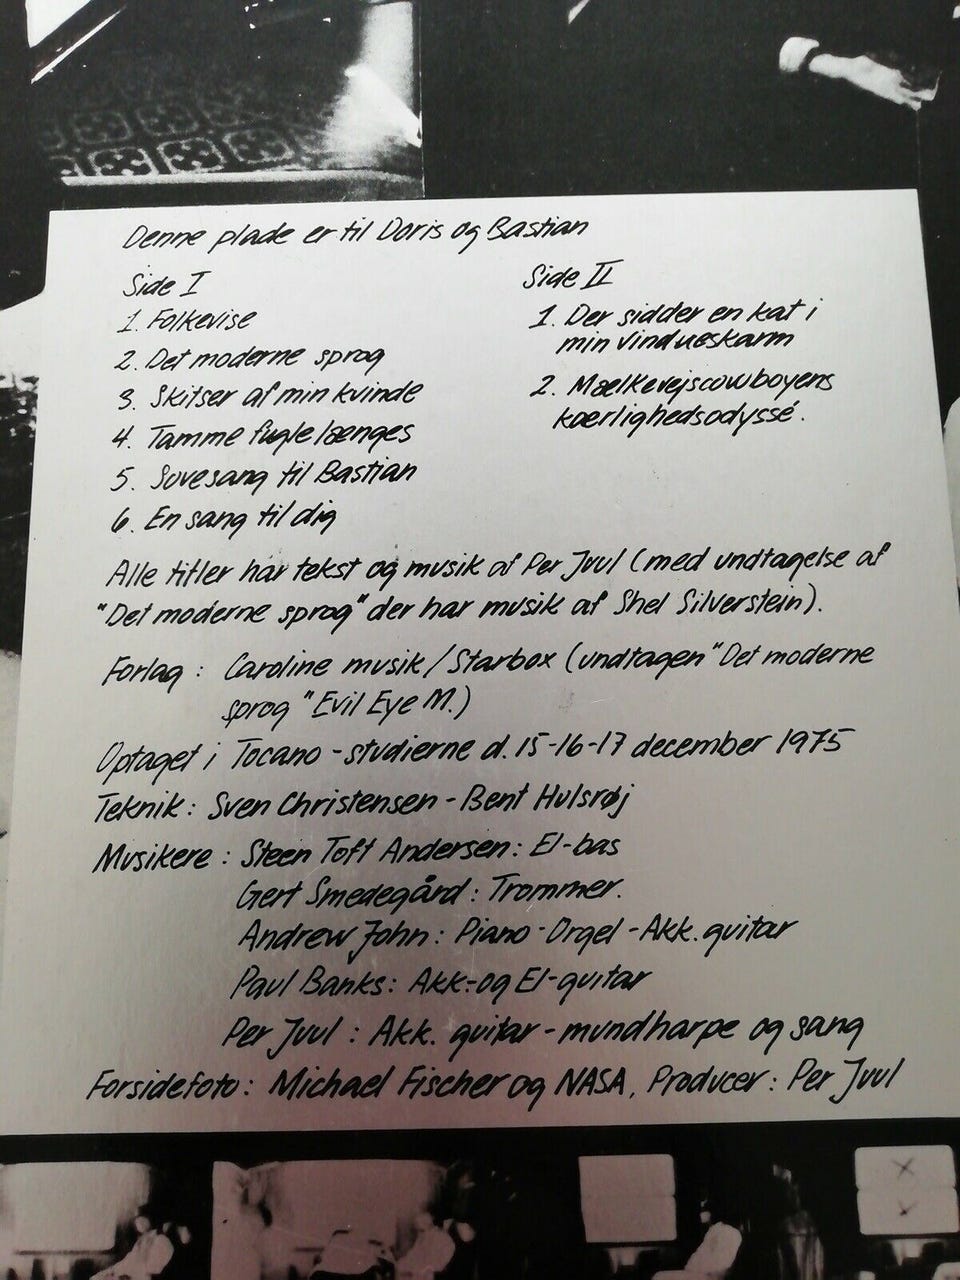 Denne plade er til Doris og Bastian
Side I
1. Folkevise
2. Det moderne sprog
3. Skitser af min kvinde
4. Tamme fugle længes
5. Sovesang til Bastian
6. En sang til dig
Side II
1. Der sidder en kat i
min vindueskarm
2. Mælkevejscowboyens
kærlighedsodyssé.
Alle titler har tekst og musik af Per Juul (med undtagelse af
"Det moderne sprog" der har musik af Shel Silverstein).
Forlag : Caroline musik/Starbox (undtagen "Det moderne
sprog" Evil Eye M.)
Optaget i Tocano-studierne d. 15-16-17 december 1975
Teknik: Sven Christensen - Bent Hulsrøj
Musikere : Steen Toft Andersen: El-bas
Gert Smedegård : Trommer.
Andrew John: Piano - Orgel - Akk. guitar
Paul Banks: Akk-og El-guitar
Per Juul : Akk. guitar - mundharpe og sang
Forsidefoto: Michael Fischer og NASA. Producer: Per Juul